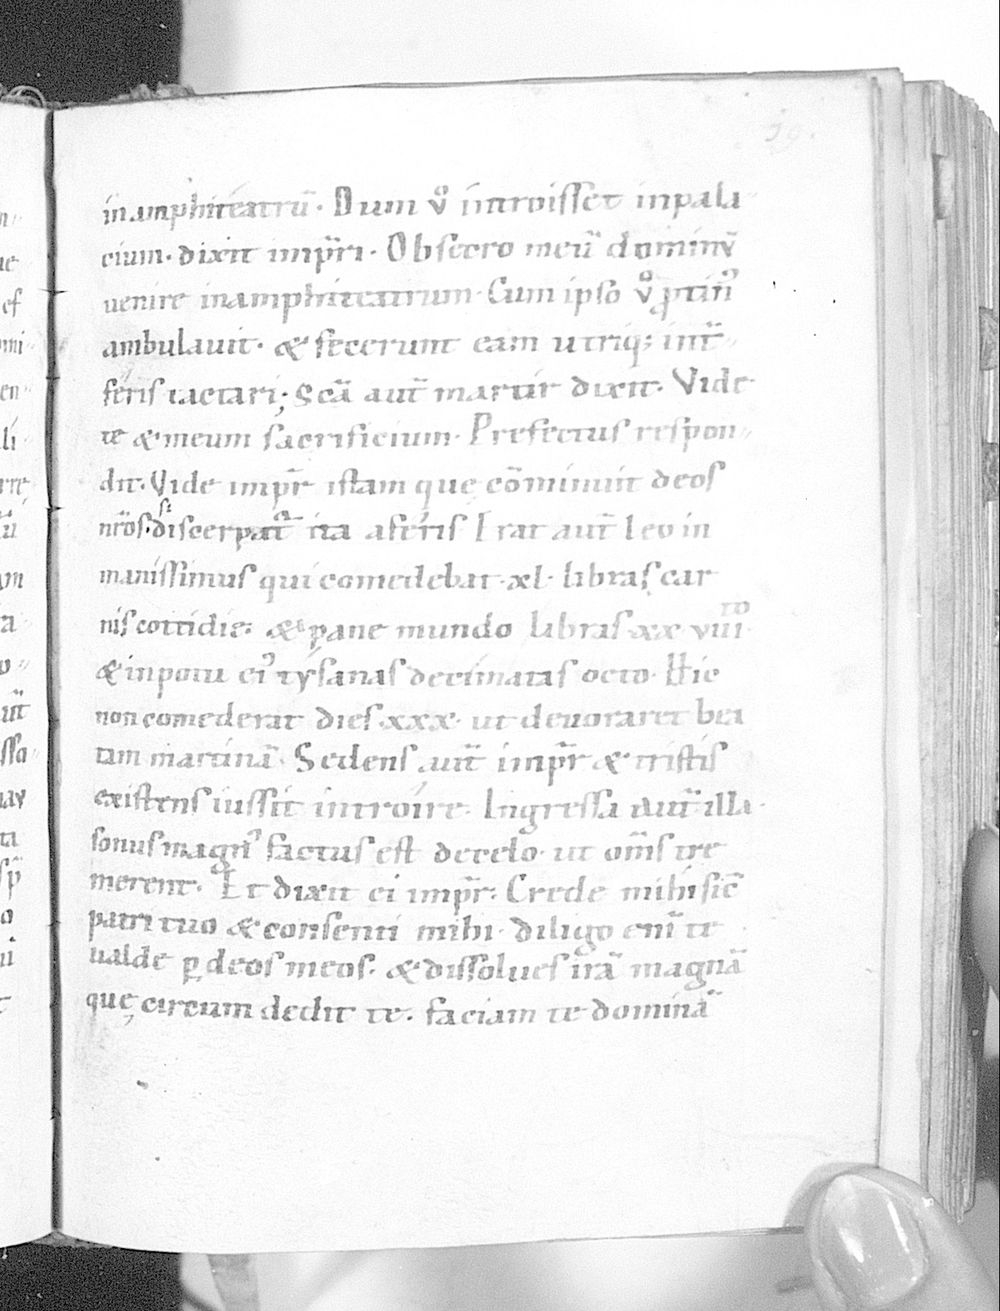 19.
inamphiteatrū. Dum v̊ introisset inpala
cium. dixit impr̄i. Obsecro meū dominū
uenire inamphiteatrum. Cum ipso v̊
ambulauit. & fecerunt eam utriq; int̄
feris iactari; Scā aut̄ martir dixit. Vide
te & meum sacrificium. Prefectus respon
dit. Vide imp̄r istam que cōminuit deos
nr̄os. si discerpat̄ ita aferis Erat aut̄ leo in
manissimus qui comedebat .xl. libras car
nis cottidie; & pane mundo libras xx
& inpotu ei tysanas decimatas octo. Hic
non comederat dies .xxx. ut deuoraret bea
tam martinā. Sedens aut̄ imp̄r & tristis
existens iussit introire. Ingressa aut̄ illa.
sonus magn' factus est decelo. ut om̄s tre
merent. Et dixit ei imp̄r. Crede mihi sic̄
patri tuo & consenti mihi. diligo eni te
ualde ꝑ deos meos. & dissolues irā magnā
que circum dedit te. faciam te dominā